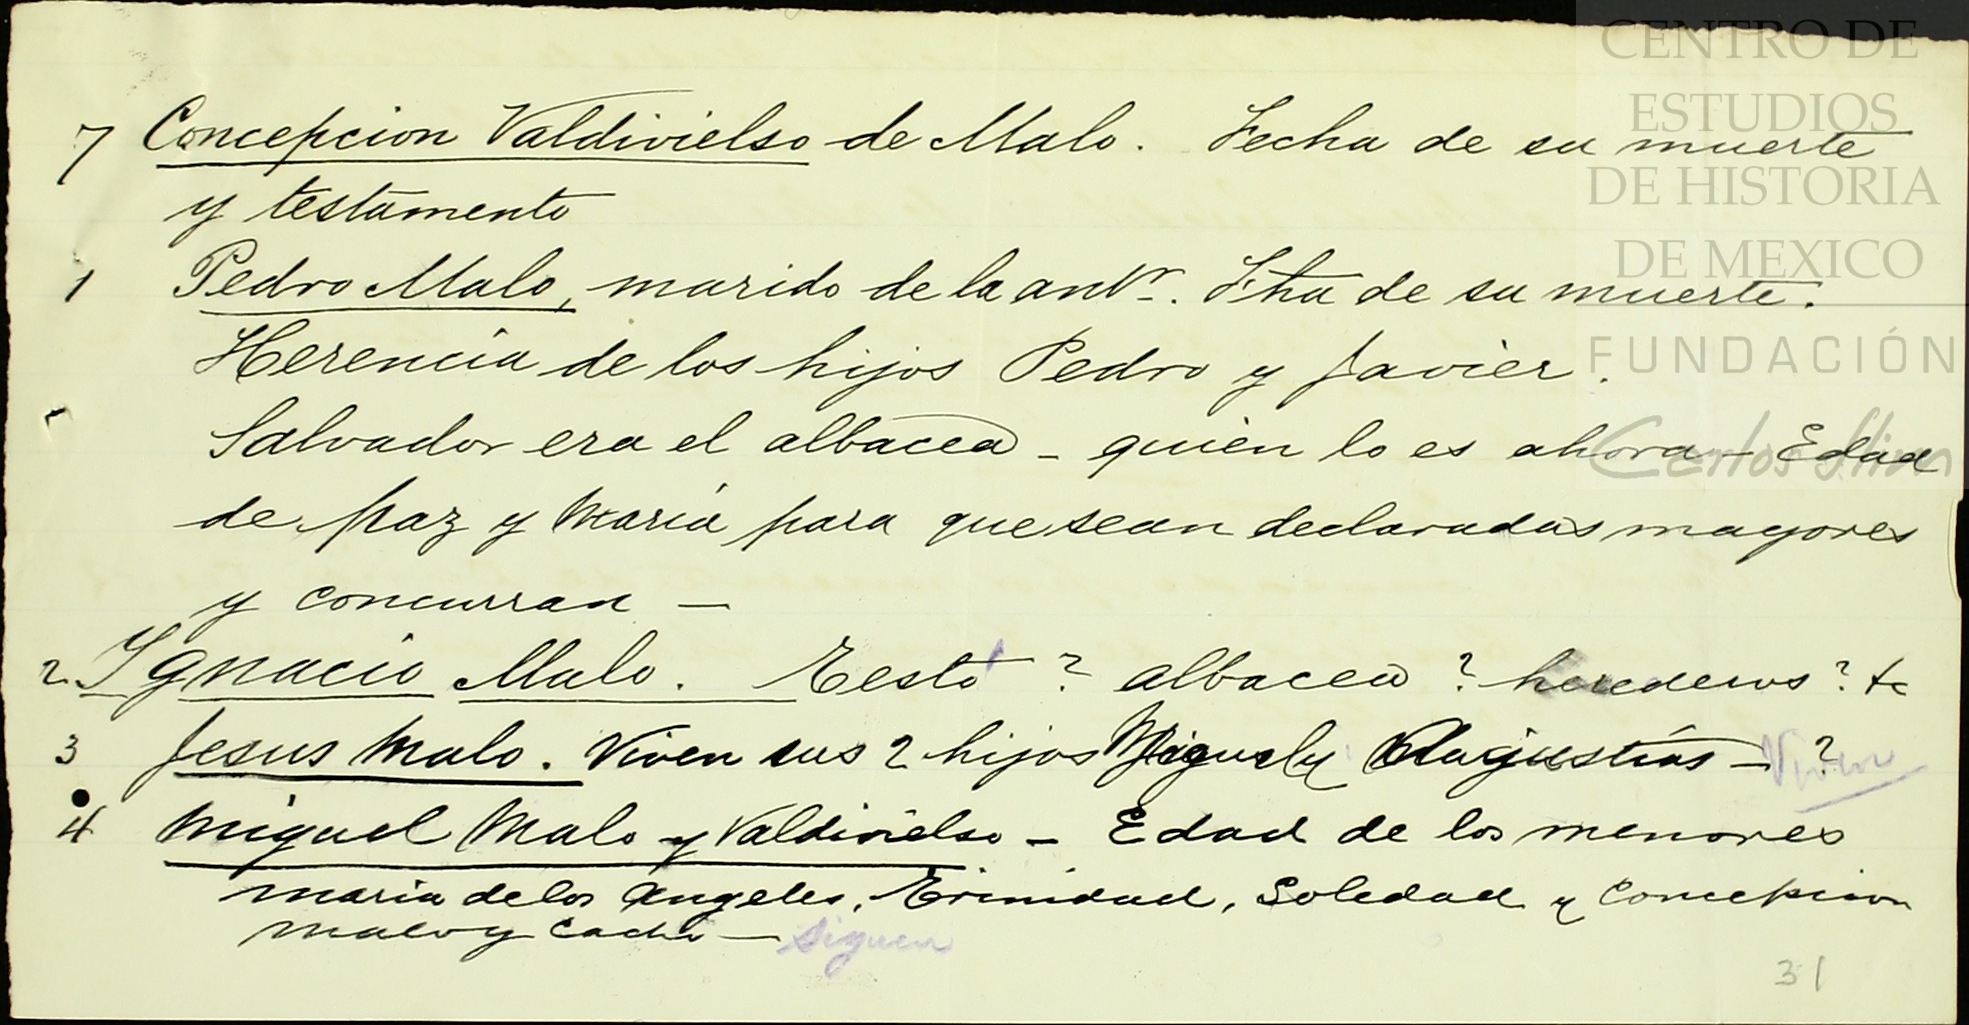 7 Concepcion Valdivielso de Malo. Fecha de su muerte
y testamento
1 Pedro Malo, marido de la antr. Fha de su muerte.
Herencia de los hijos Pedro y Javier.
Salvador era el albacea - quién lo es ahora - Edad
de Paz y María para que sean declaradas mayores
y concurran -
2. Ygnacio Malo. Testó ? albacea ? herederos ?
3 Jesus Malo. Viven sus 2 hijos Miguel y Angustias - ? Viven
4 Miguel Malo y Valdivielso - Edad de los menores
Maria de los Angeles, Trinidad, Soledad y Concepcion
Malo y
siguen
31
CENTRO DE
ESTUDIOS
DE HISTORIA
DE MEXICO
FUNDACIÓN
Carlos Slim